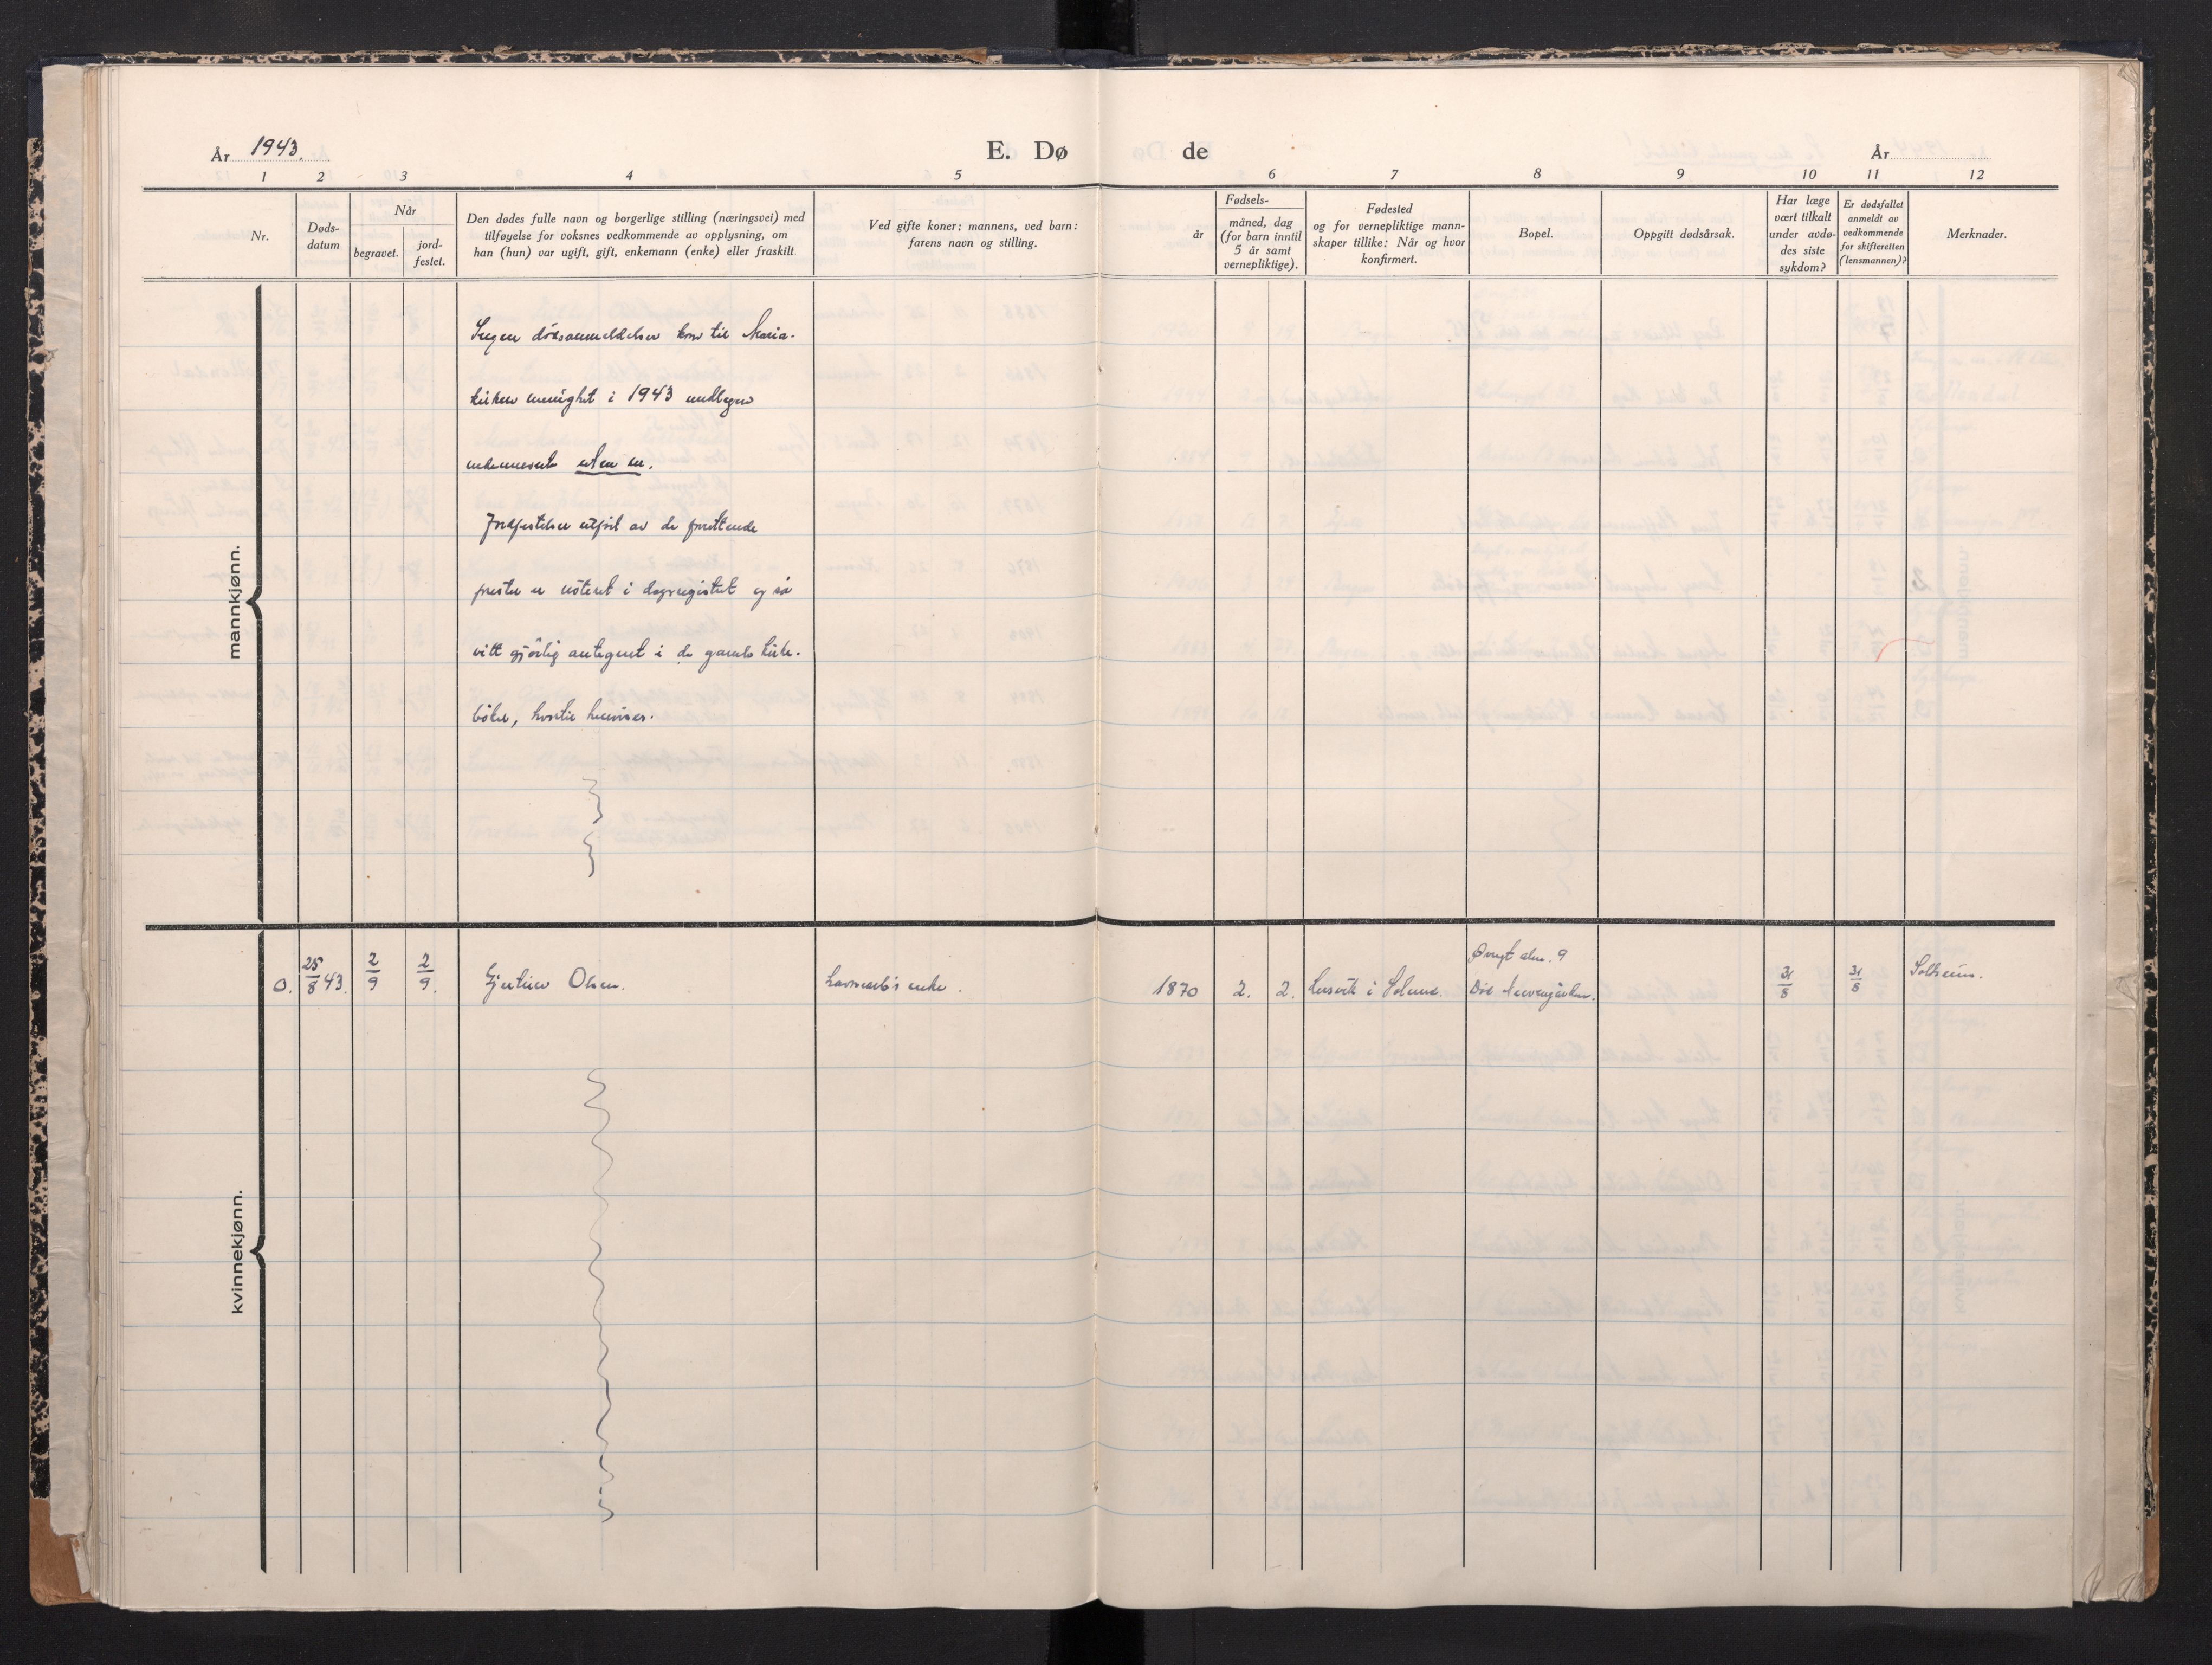 År 1943.
E. Dø de
År
1 2 3 4 5 6 7 8 9 10 11 12
Nr.
Døds-
datum
Når
begravet.
jord-
festet.
Den dødes fulle navn og borgerlige stilling (næringsvei) med
tilføyelse for voksnes vedkommende av opplysning, om
han (hun) var ugift, gift, enkemann (enke) eller fraskilt.
Ved gifte koner: mannens, ved barn:
farens navn og stilling.
Fødsels-
år
måned, dag
(for barn inntil
5 år samt
vernepliktige).
Fødested
og for vernepliktige mann-
skaper tillike: Når og hvor
konfirmert.
Bopel.
Oppgitt dødsårsak.
Har læge
vært tilkalt
under avdø-
des siste
sykdom?
Er dødsfallet
anmeldt av
vedkommende
for skifteretten
(lensmannen)?
Merknader.
mannkjønn.
Ingen dødsanmeldelser kom til Maria-
kirkens menighet i 1943
uten en.
Jordfestelser utført av de forrettende
prester er notert i dagsregistret og så
vitt gjørlig antegnet i de gamle kirke-
bøker, hvortil henvises.
kvinnekjønn.
0. 25/8 43. 2/9 2/9. Gjertine Olsen. enke. 1870 2. 2. i Solund. Øvregt alm. 9
Død 31/8 31/8 Solheim.